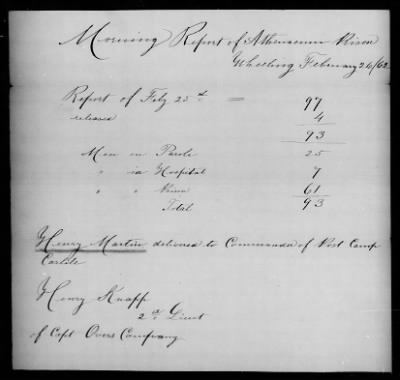 Morning Report of Athenaeum Prison
Wheeling February 26/62
Report of Feby 25th = 97
released 4
93
Men on Parole 25
" in Hospital 7
" " Prison 61
Total 93
Henry Martin delivered to Commander of Post Camp
Carlile
Henry Knapp
2d Lieut
of Capt Overs Company